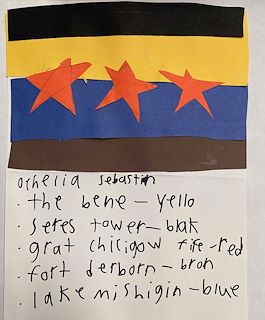 Othelia Sebastin
· the bene - yello
· Seres tower - blak
· grat chicigow fife - red
· fort derborn - bron
· lake mishigin - blue